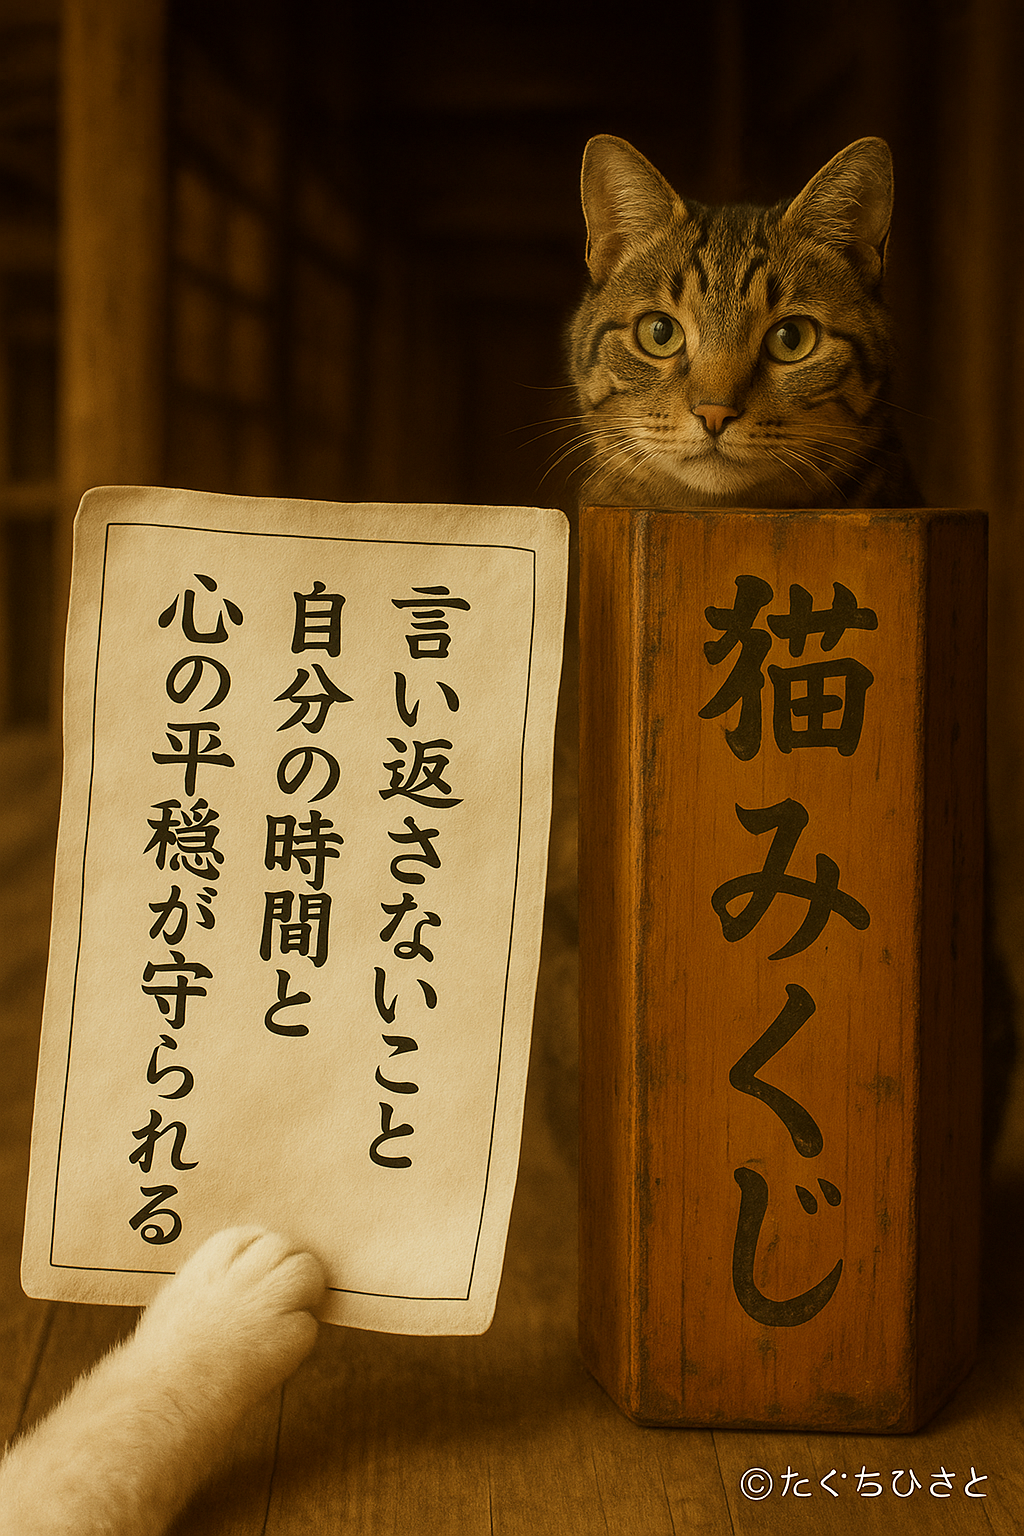 言い返さないこと
自分の時間と
心の平穏が守られる
猫みくじ
©たぐちひさと